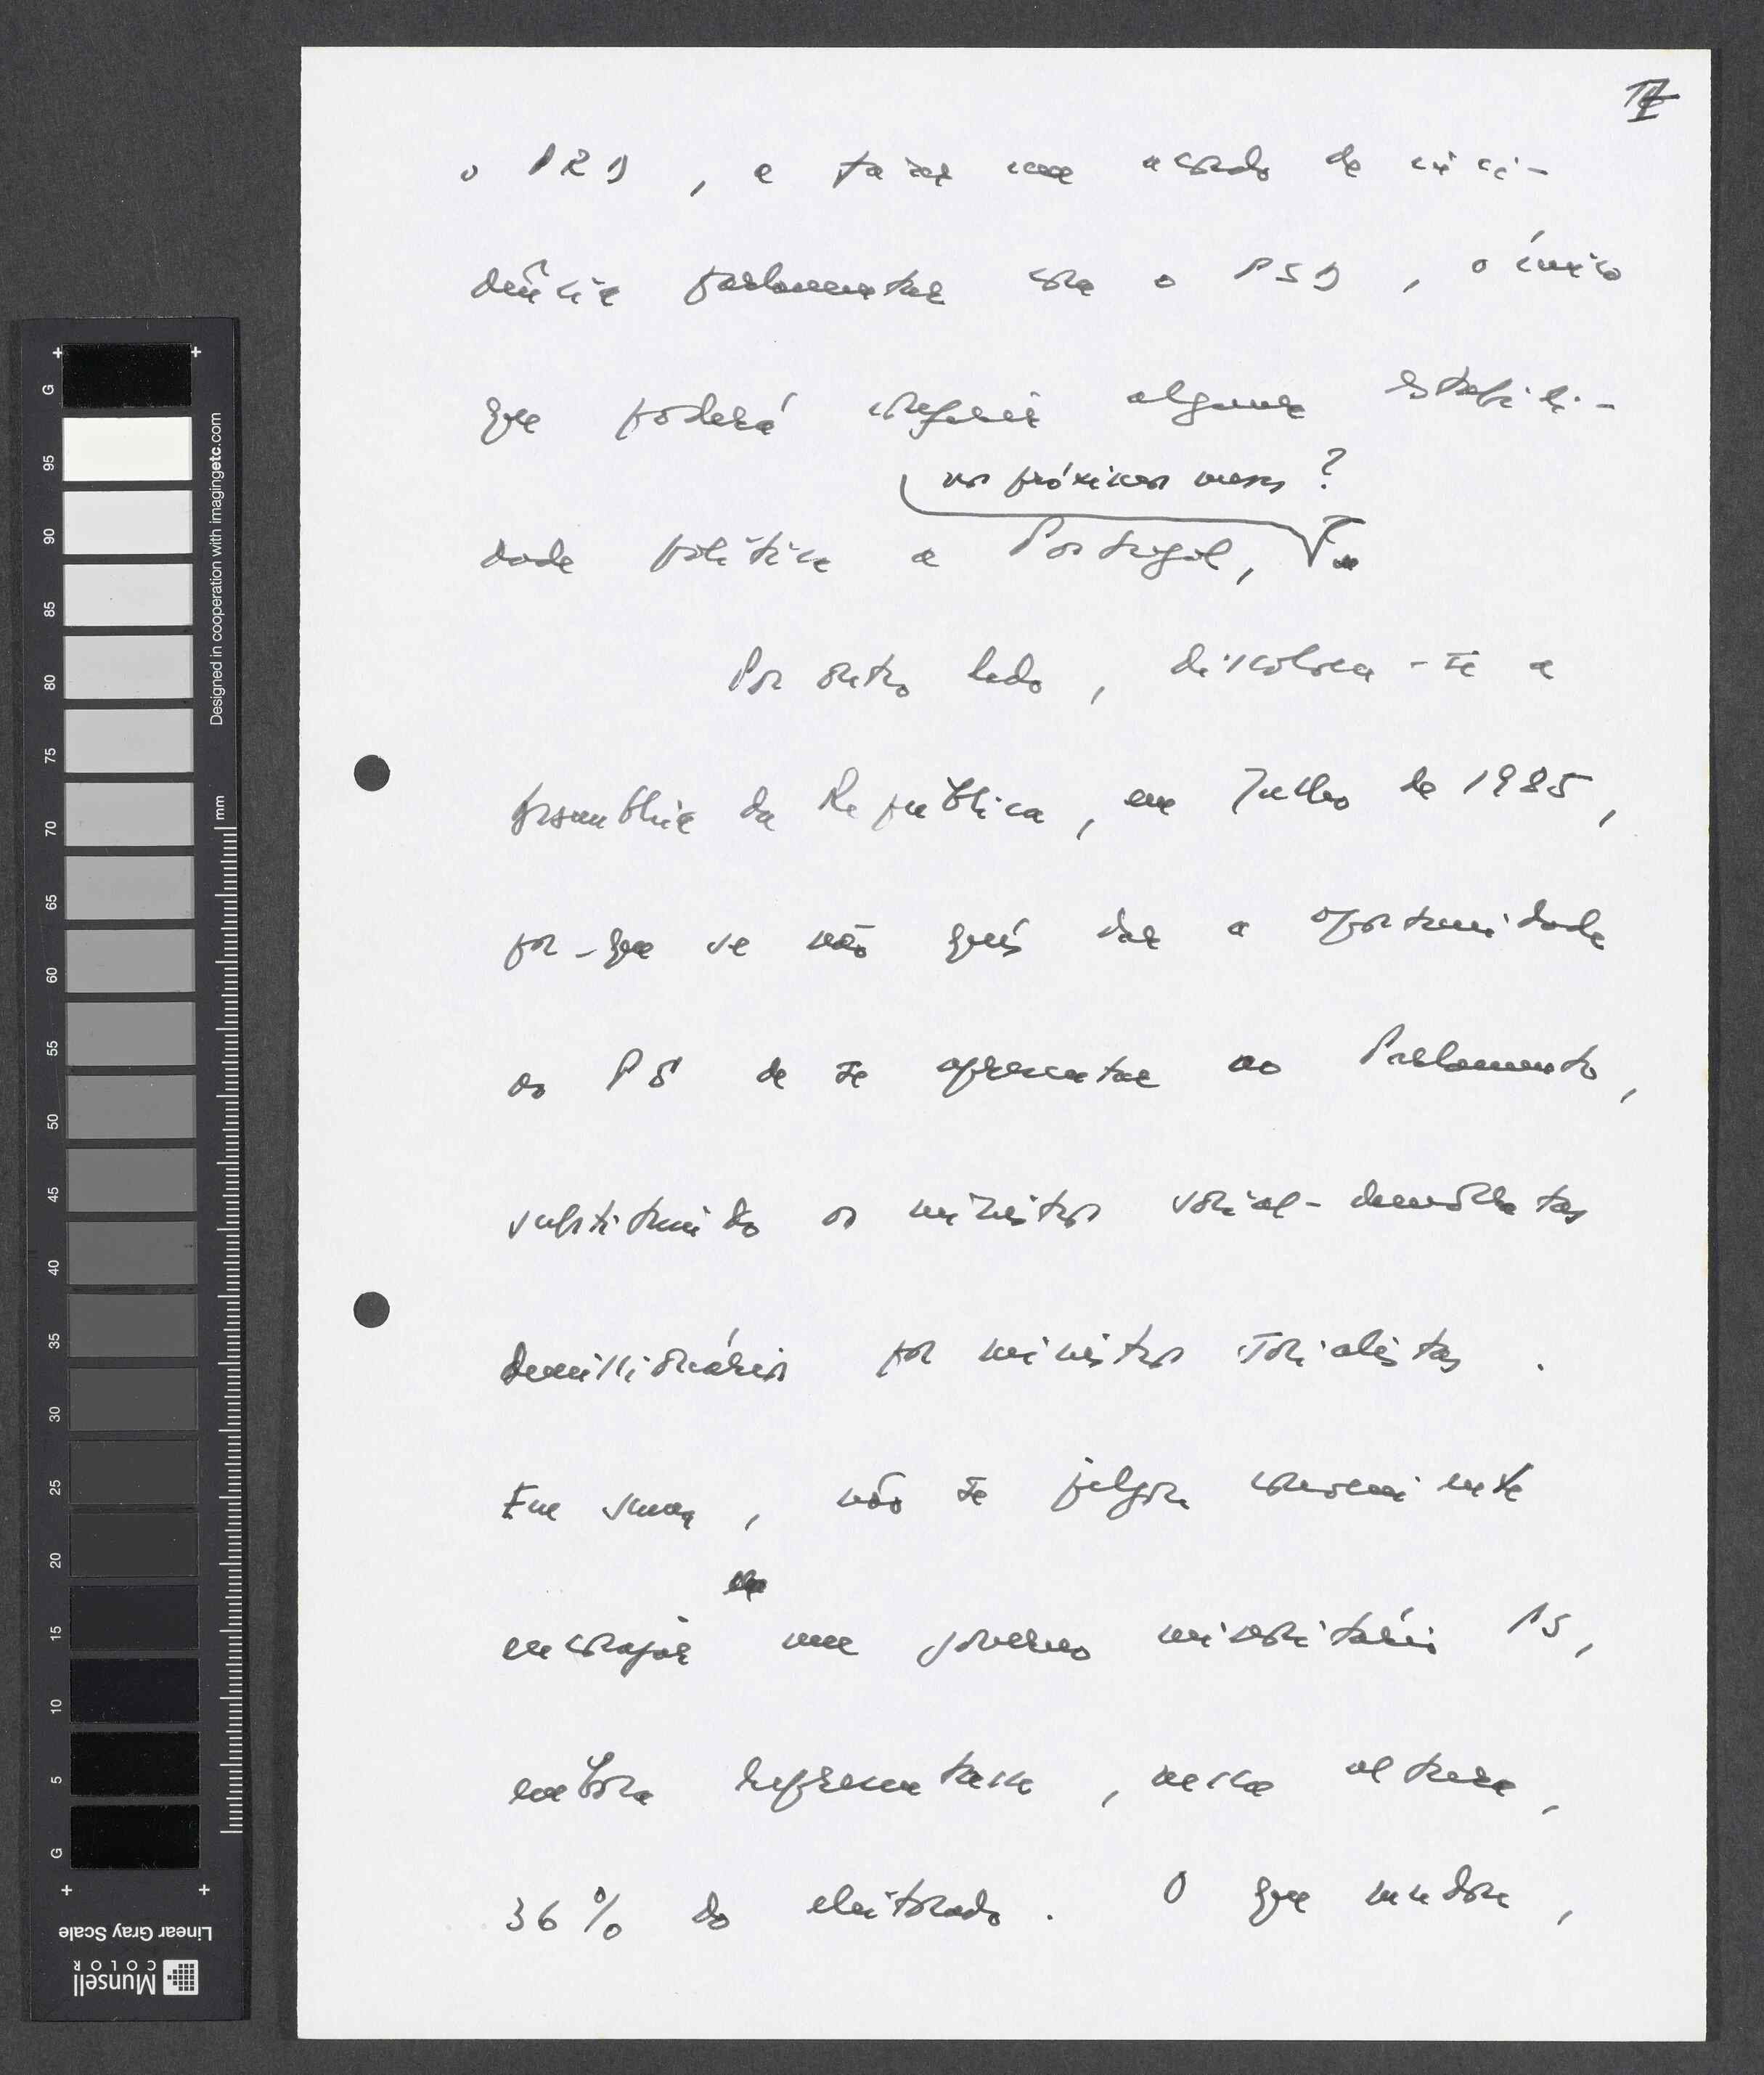 IV
o PRD, a fazer um acordo de inci-
dência parlamentar com o PSD, o único
que poderá conferir alguma estabili-
nos próximos meses?
dade política a Portugal,
Por outro lado, dissolveu-se a
Assembleia da República, em Julho de 1985,
por-que se não quis dar a oportunidade
ao PS de se apresentar ao Parlamento,
substituindo os ministros social-democratas
demissionários por ministros socialistas.
Em suma, não se julgou conveniente
encorajar um governo minoritário PS,
embora representasse, nessa altura,
36% do eleitorado. O que mudou,
+ +
G
95
90
85
80
75
70
65
60
55
50
45
40
35
30
25
20
15
10
5
G
+ +
mm
Designed in cooperation with imagingetc.com
Linear Gray Scale
Munsell
COLOR